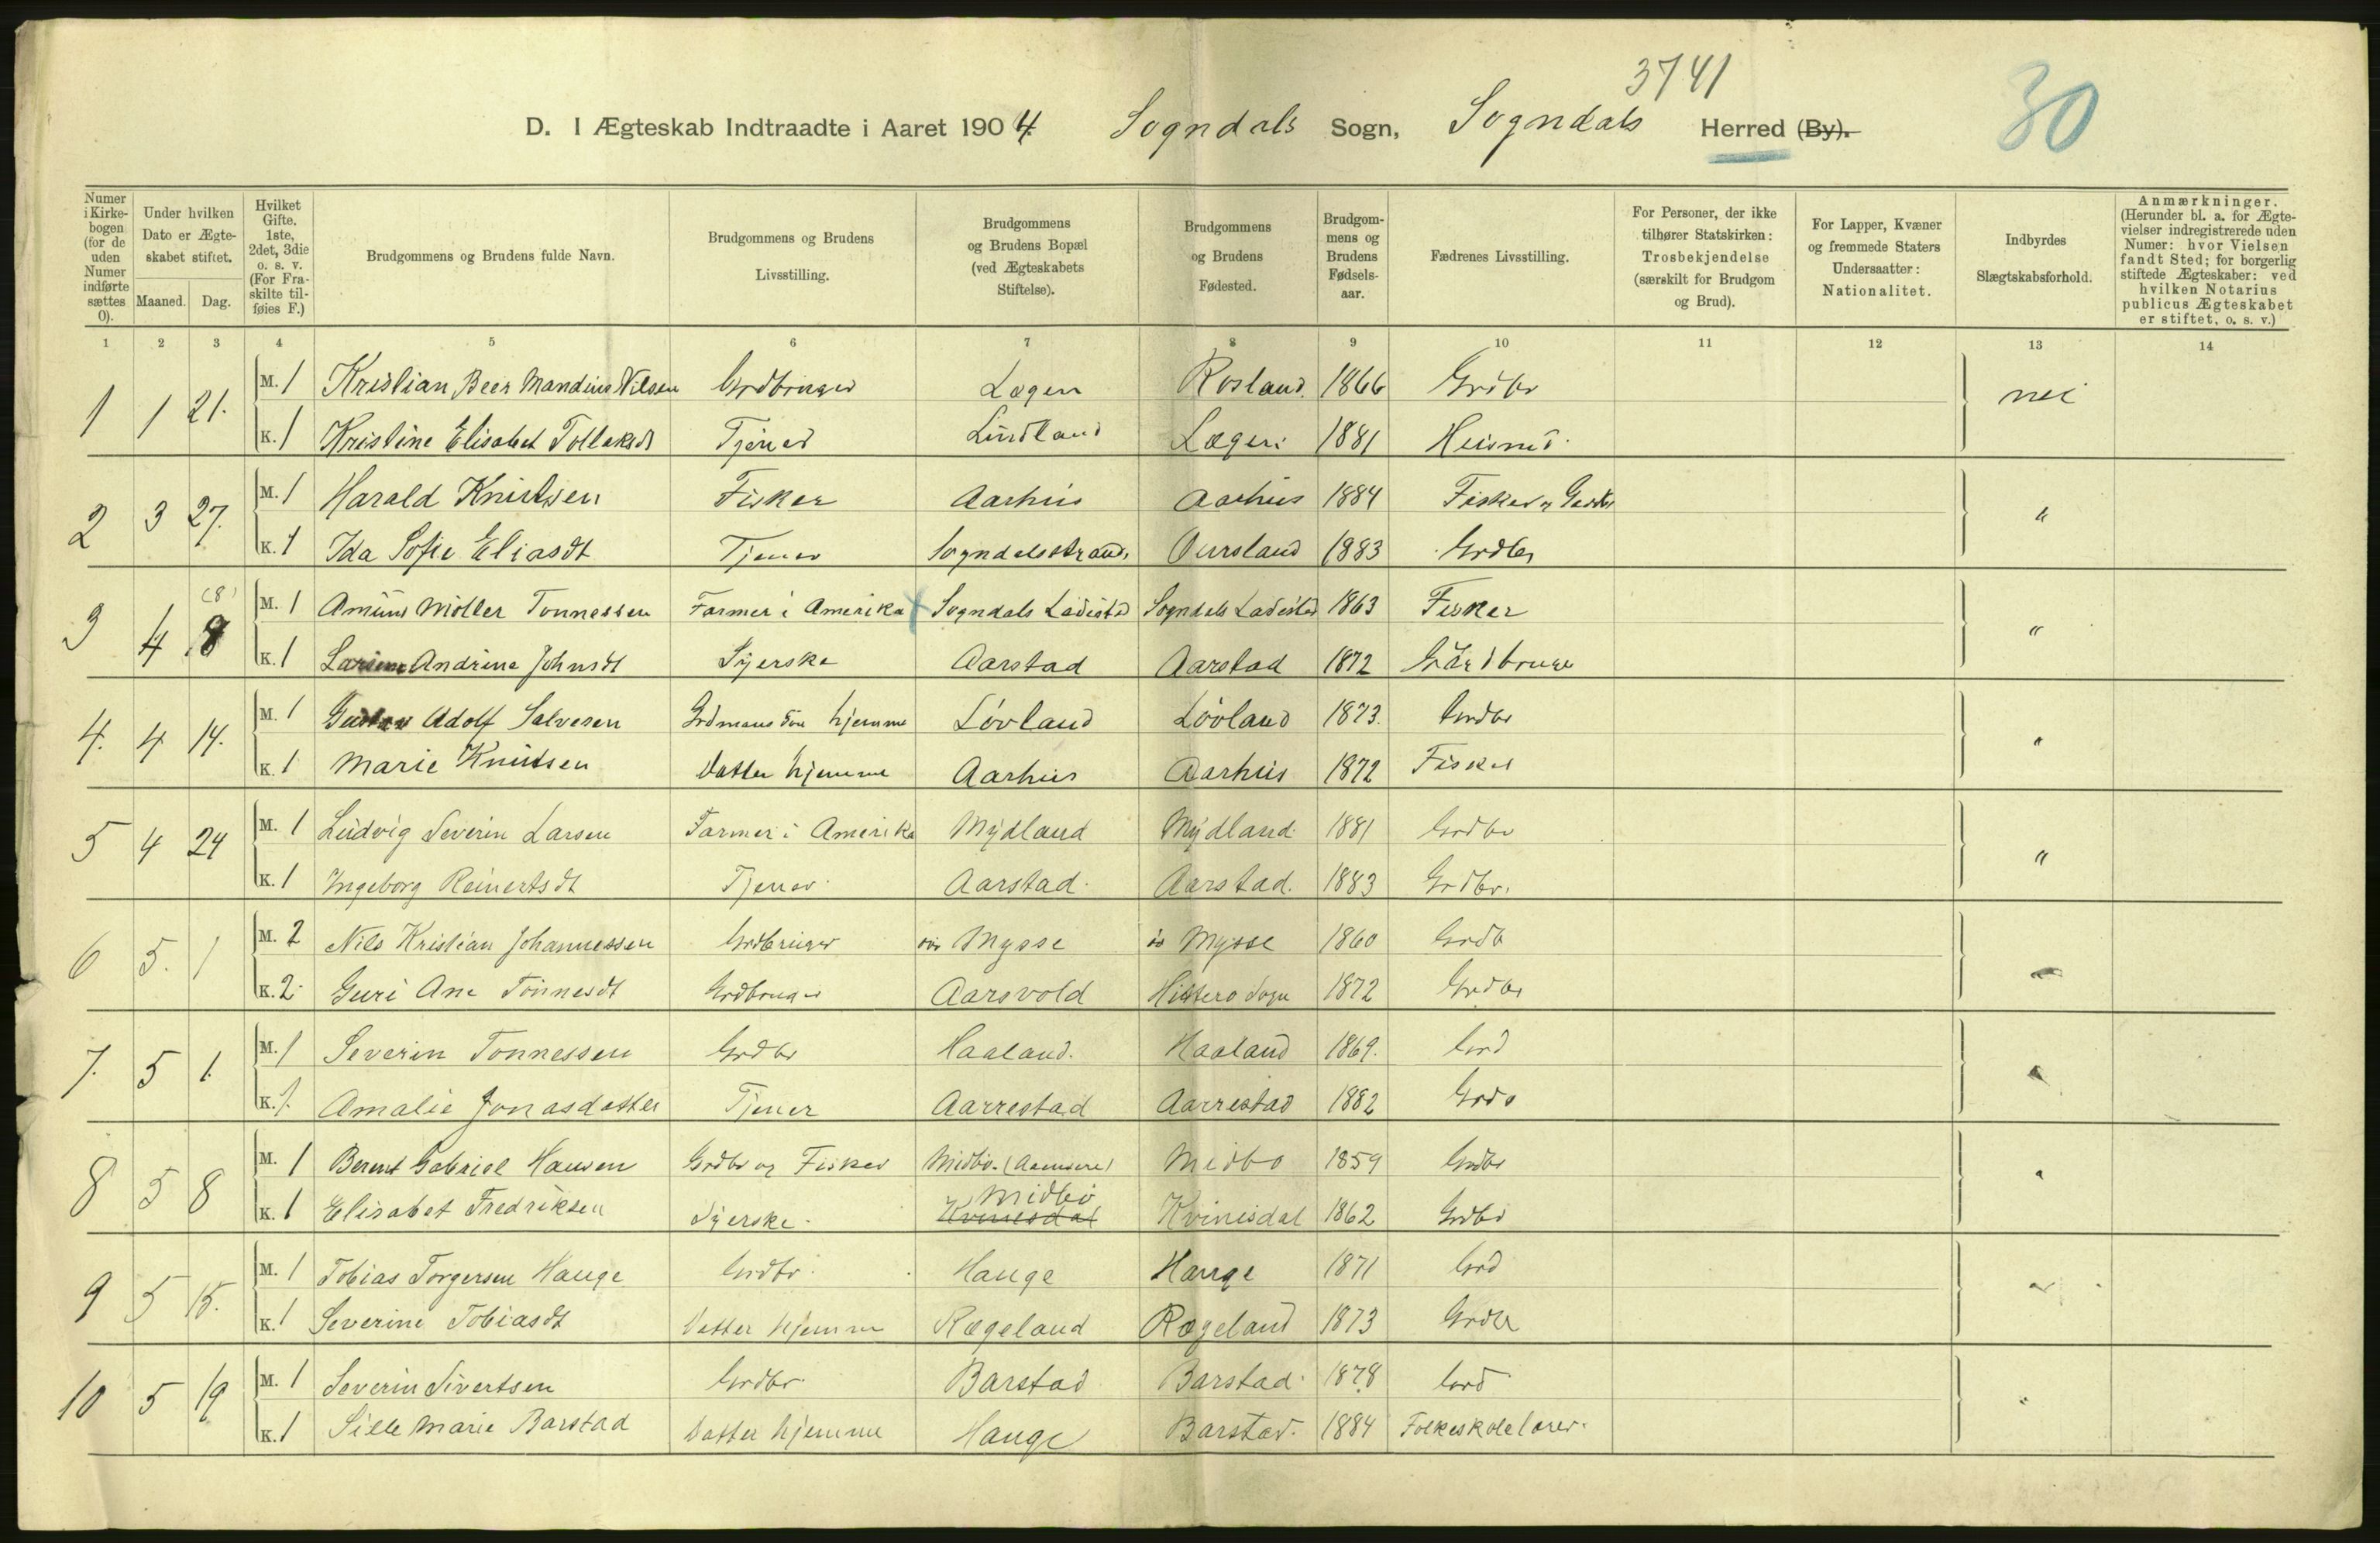 3741
30
D. I Ægteskab Indtraadte i Aaret 1904 Sogndals Sogn, Sogndals Herred (By).
Numer i Kirkebogen (for de uden Numer indførte sættes 0).
Under hvilken Dato er Ægteskabet stiftet.
Maaned. Dag.
Hvilket Gifte. 1ste, 2det, 3die o. s. v. (For Fraskilte tilføies F.)
Brudgommens og Brudens fulde Navn.
Brudgommens og Brudens Livsstilling.
Brudgommens og Brudens Bopæl (ved Ægteskabets Stiftelse).
Brudgommens og Brudens Fødested.
Brudgommens og Brudens Fødselsaar.
Fædrenes Livsstilling.
For Personer, der ikke tilhører Statskirken: Trosbekjendelse (særskilt for Brudgom og Brud).
For Lapper, Kvæner og fremmede Staters Undersaatter: Nationalitet.
Indbyrdes Slægtskabsforhold.
Anmærkninger. (Herunder bl. a. for Ægtevielser indregistrerede uden Numer: hvor Vielsen fandt Sted; for borgerlig stiftede Ægteskaber: ved hvilken Notarius publicus Ægteskabet er stiftet, o. s. v.)
1 2 3 4 5 6 7 8 9 10 11 12 13 14
1 1 21. M. 1 Kristian Beer Mandius Nilsen Grdbruger Lægen Rosland. 1866 Grdbr nei
K. 1 Kristine Elisabet Tollaksdt Tjener Lindland Lægen 1881
2 3 27. M. 1 Harald Knutsen Fisker Aarhus Aarhus 1884 Fisker og "
K. 1 Ida Sofie Eliasdt Tjener Sogndalsstrand. Oursland 1883 Grdbr
3 4 8 (8) M. 1 Amund Møller Tønnessen Farmer i Amerika Sogndals Ladested Sogndals Ladested 1863 Fisker "
K. 1 Andrine Johnsdt Syerske Aarstad Aarstad 1872 Gårdbruger
4. 4 14. M. 1 Gustav Adolf Salvesen Grdmans Søn hjemme Løvland Løvland 1873. Grdbr "
K. 1 Marie Knutsen Datter hjemme Aarhus Aarhus 1872 Fisker
5 4 24 M. 1 Ludvig Severin Larsen Farmer i Amerika Mydland Mydland 1881 Grdbr "
K. 1 Ingeborg Reinertsdt Tjener Aarstad. Aarstad. 1883 Grdbr.
6 5. 1 M. 2 Nils Kristian Johannessen Grdbruger Mysse Mysse 1860 Grdb "
K. 2. Guri Ane Tønnesdt Grdbruger Aarsvold Hitterø Sogn 1872 Grdbr
7. 5 1. M. 1 Severin Tønnessen Grdbr Haaland. Haaland 1869. Grd "
K. 1. Amalie Jonasdatter Tjener Aarrestad Aarrestad 1882 Grdb
8 5 8 M. 1 Berent Gabriel Hansen Grdbr og Fisker Midbø. Midbø 1859 Grdbr "
Midbø
K. 1 Elisabet Fredriksen Syerske. Kvinesdal Kvinisdal 1862 Grdbr
9 5 15. M. 1 Tobias Torgersen Hauge Grdbr. Hauge Hauge 1871 Grd "
K. 1 Severine Tobiasdt Datter hjemme Rægeland Rægeland 1873 Grdbr
10 5 19 M. 1 Severin Sivertsen Grdbr. Barstad Barstad 1878 Grd "
K. 1 Sille Marie Barstad Datter hjemme Hauge Barstad. 1884 Folkeskolelærer.